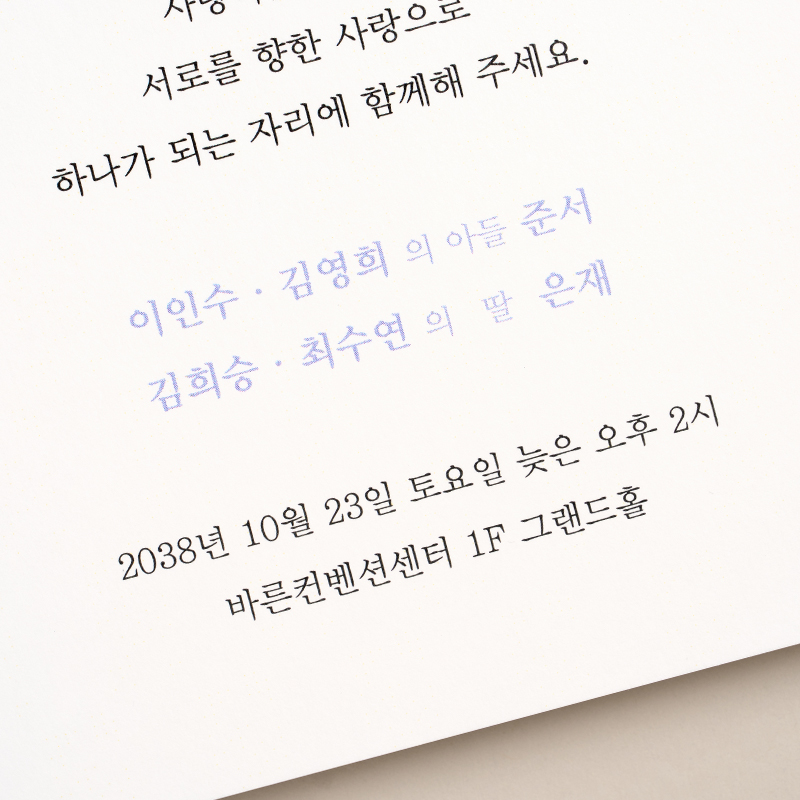 서로를 향한 사랑으로
하나가 되는 자리에 함께해 주세요.
이인수 · 김영희 의 아들 준서
김희승 · 최수연 의 딸 은재
2038년 10월 23일 토요일 늦은 오후 2시
바른컨벤션센터 1F 그랜드홀